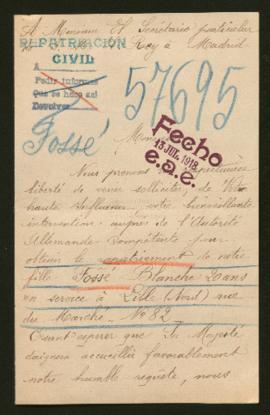 A Monsieur El Secrétario particular
Rey à Madrid
REPATRIACIÓN
CIVIL
A
Pedir informes
Que se haga así
Devolver
57695
Fossé
Fecho
13 JUL. 1918
e.a.e.
Nous prenons
liberté de venir solliciter de Votre
haute Influence, votre bienveillante
intervention auprès de l'Autorité
Allemande Compétente pour
obtenir le rapatriement de notre
fille Fossé Blanche 20 ans
en service à Lille (Nord) rue
du Marché No 82
Osant espérer que Sa Majesté
daignera accueillir favorablement
notre humble requête, nous